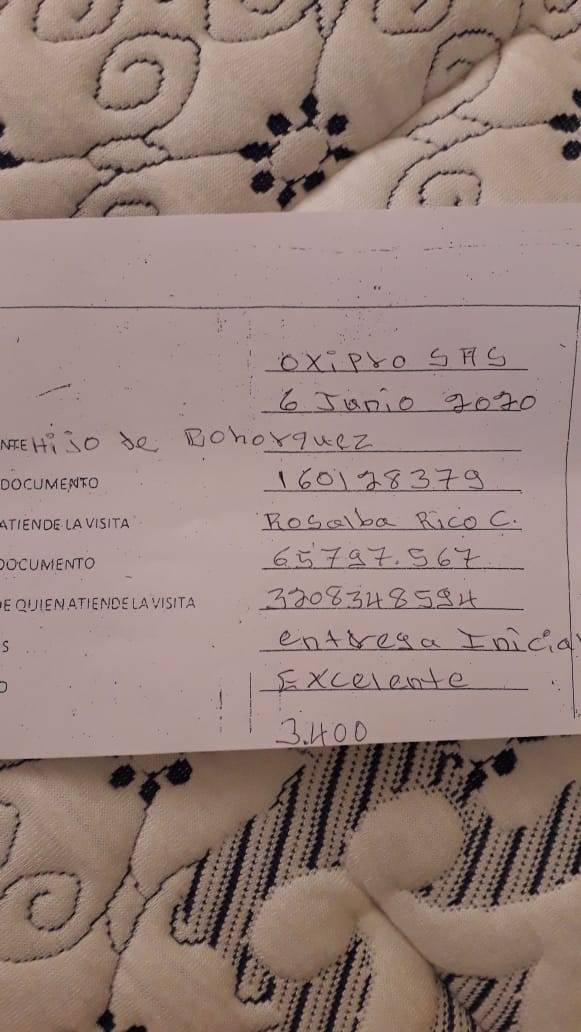 OXiPro SAS
6 Junio 2020
NTE Hijo de Bohorquez
DOCUMENTO 160128379
ATIENDE LA VISITA Rosalba Rico C.
DOCUMENTO 65797.567
DE QUIEN ATIENDE LA VISITA 3208348594
S entrega Inicial
O Excelente
3.400